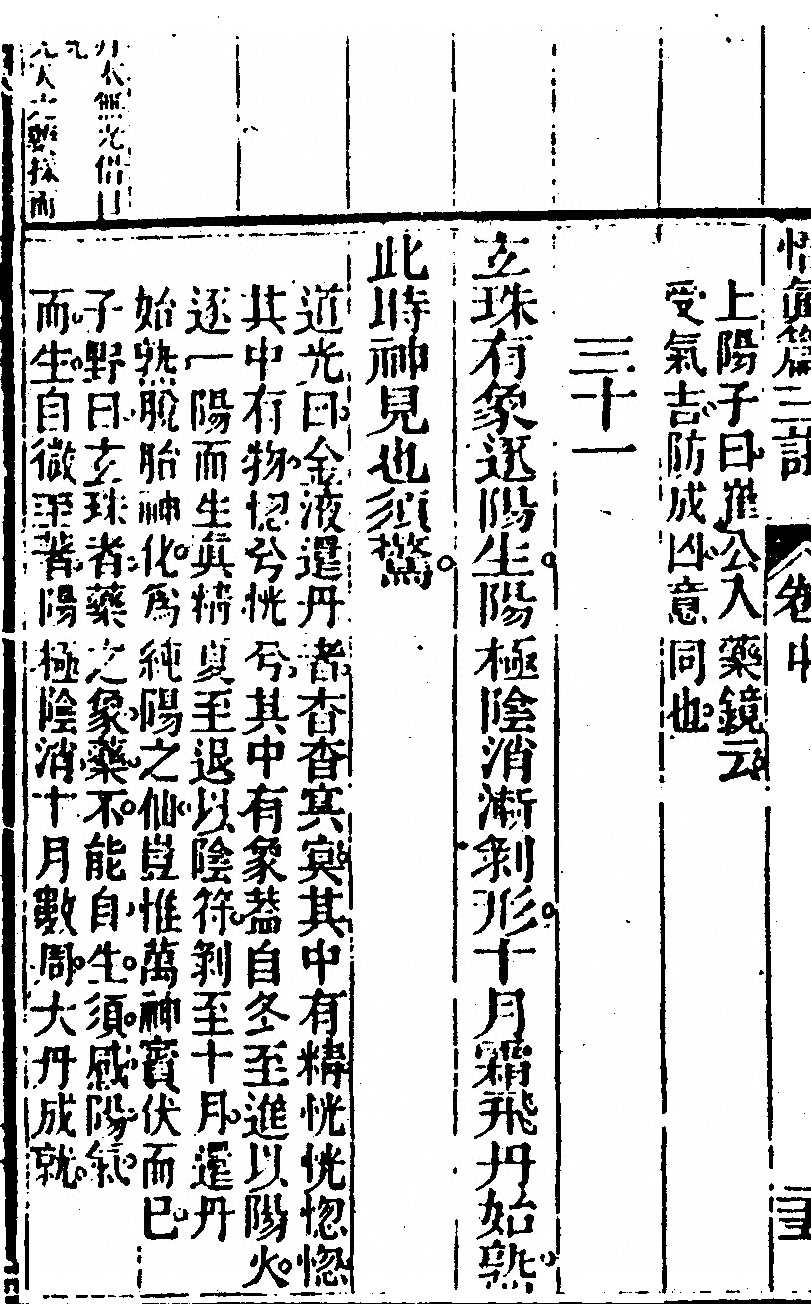 悟眞篇三註 卷中
上陽子曰崔公入藥鏡云
受氣吉防成凶意同也
三十一
玄珠有象逐陽生陽極陰消漸剝形十月霜飛丹始熟
此時神見也須驚
道光曰金液還丹者杳杳冥冥其中有精恍恍惚惚
其中有物惚兮恍兮其中有象蓋自冬至進以陽火
逐一陽而生眞精夏至退以陰符剝至十月還丹
始熟脫胎神化爲純陽之仙豈惟萬神賓伏而已
子野曰玄珠者藥之象藥不能自生須感陽氣
而生自微至著陽極陰消十月數周大丹成就
月本無光借日
藥採而